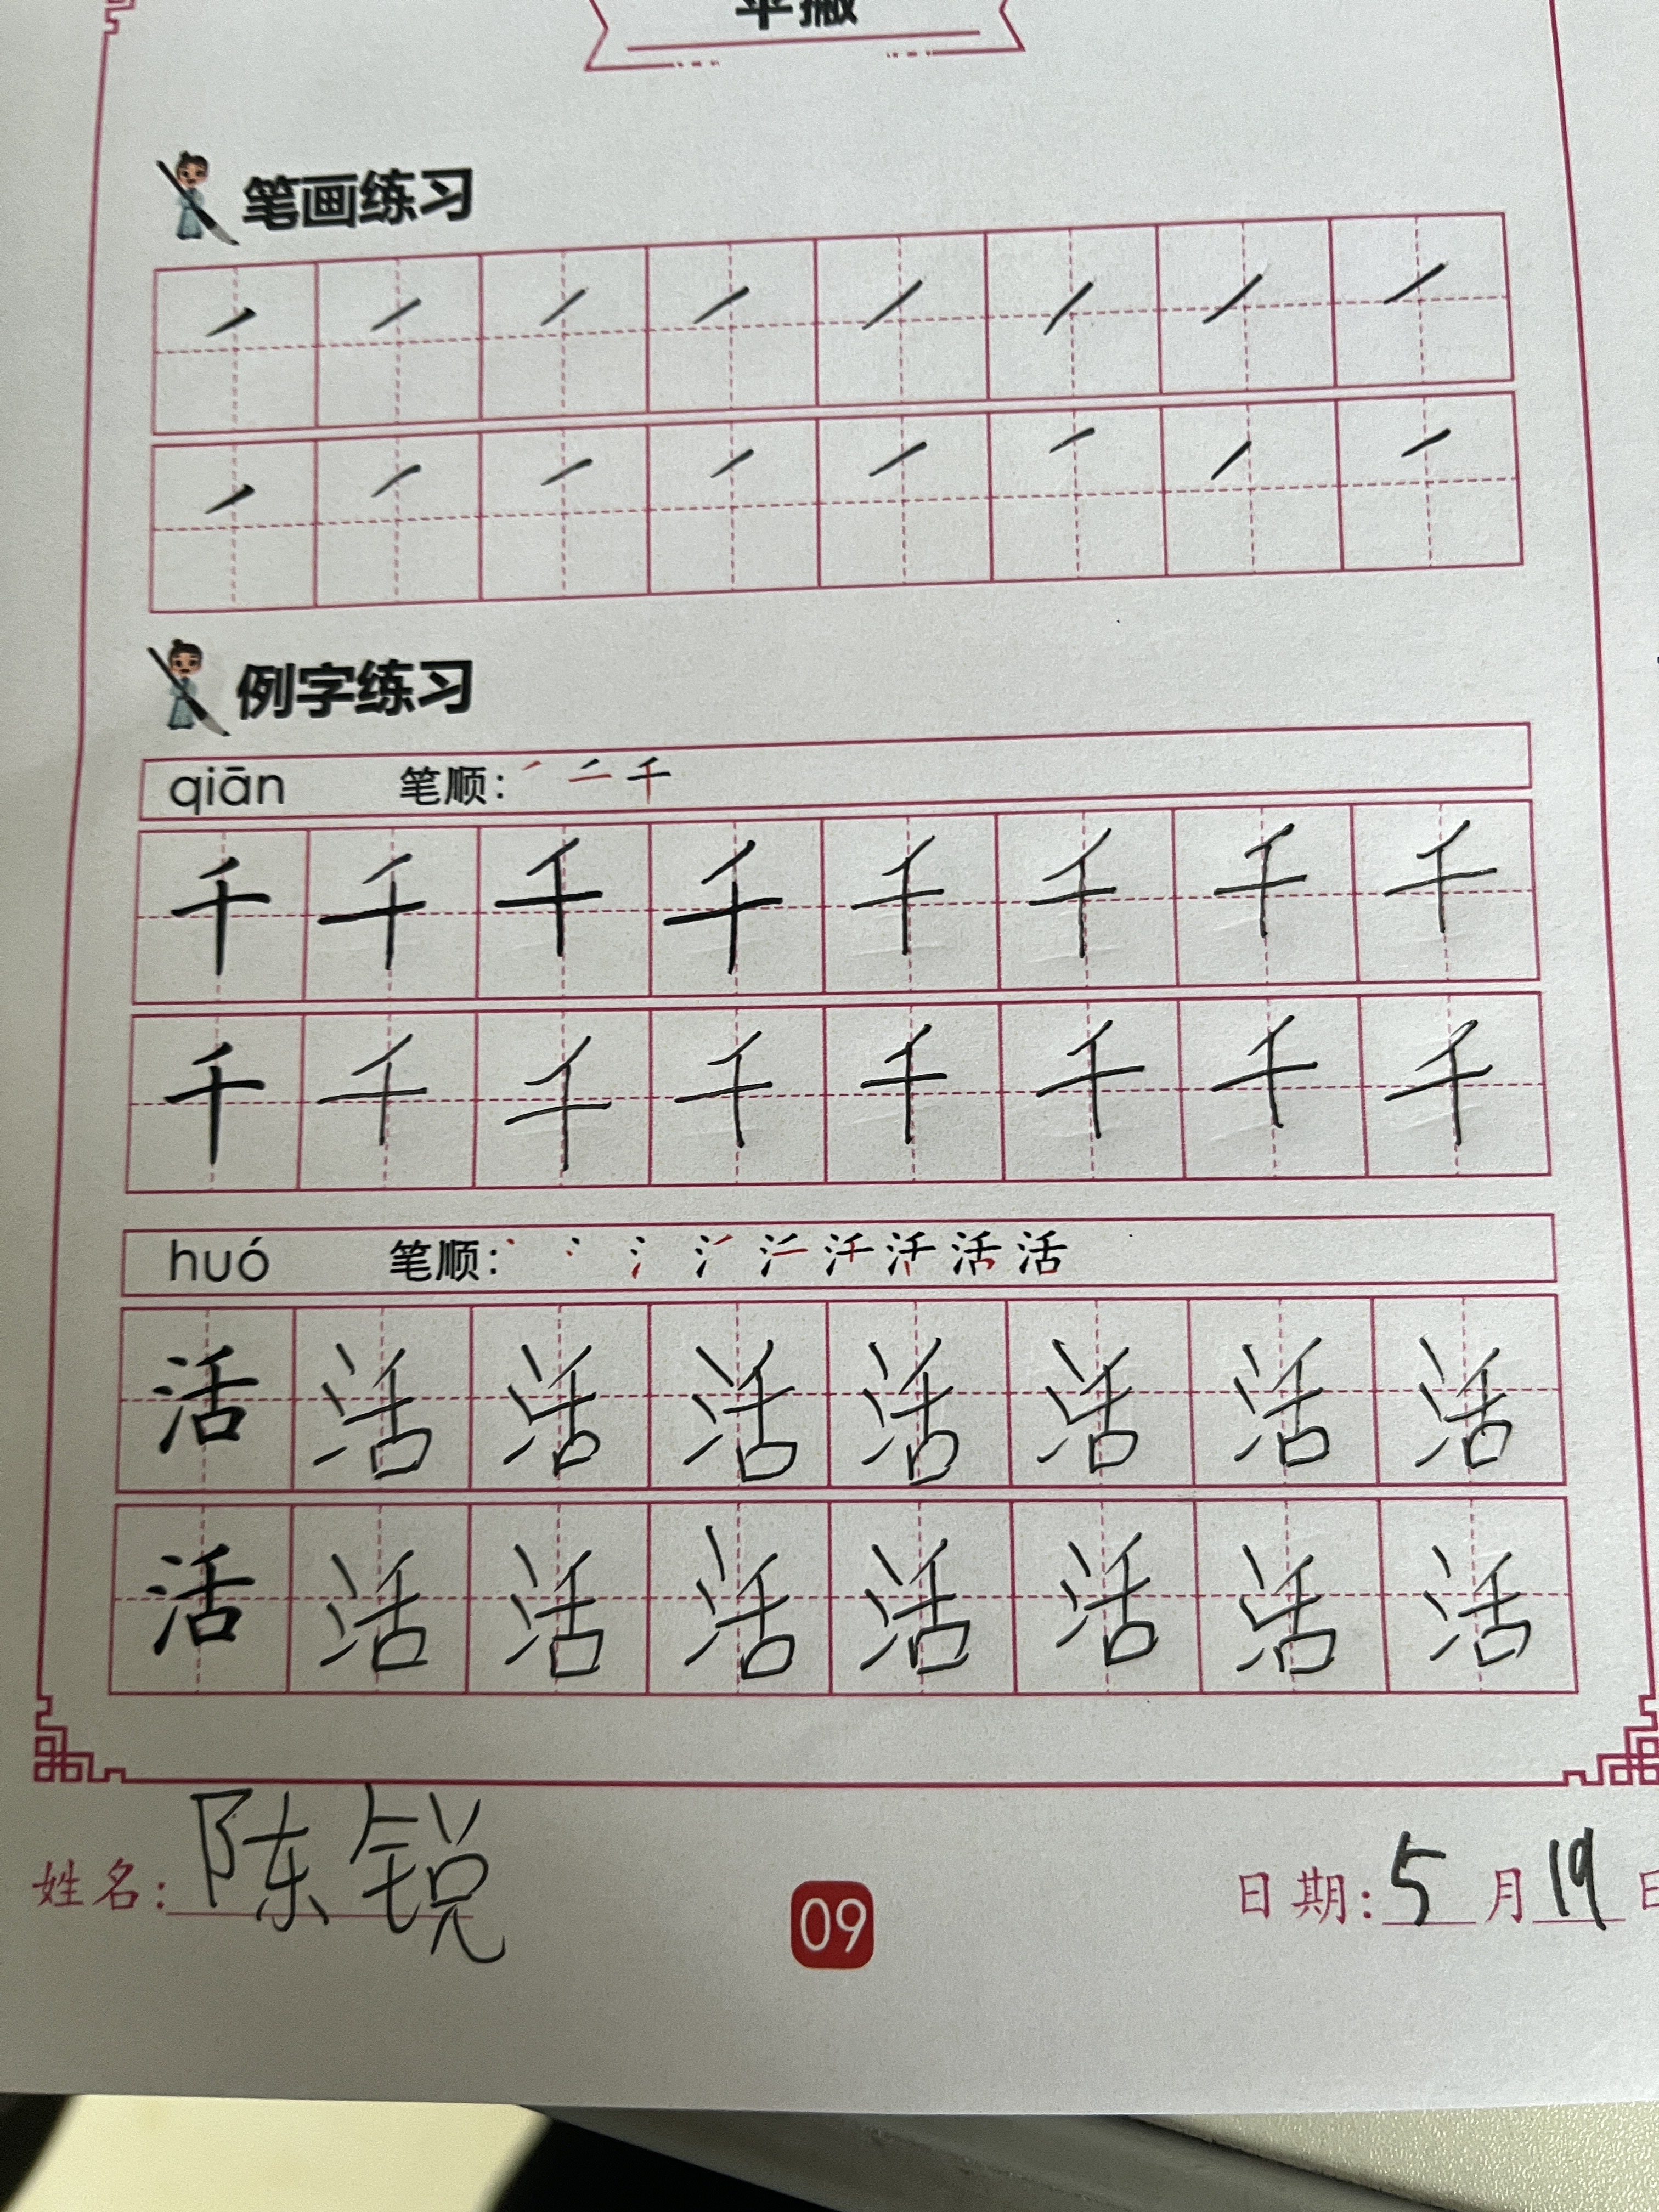 平撇
笔画练习
例字练习
qiān 笔顺: 千
千 千 千 千 千 千 千 千
千 千 千 千 千 千 千 千
huó 笔顺: 活
活 活 活 活 活 活 活 活
活 活 活 活 活 活 活 活
姓名: 陈锐 09 日期: 5月19日